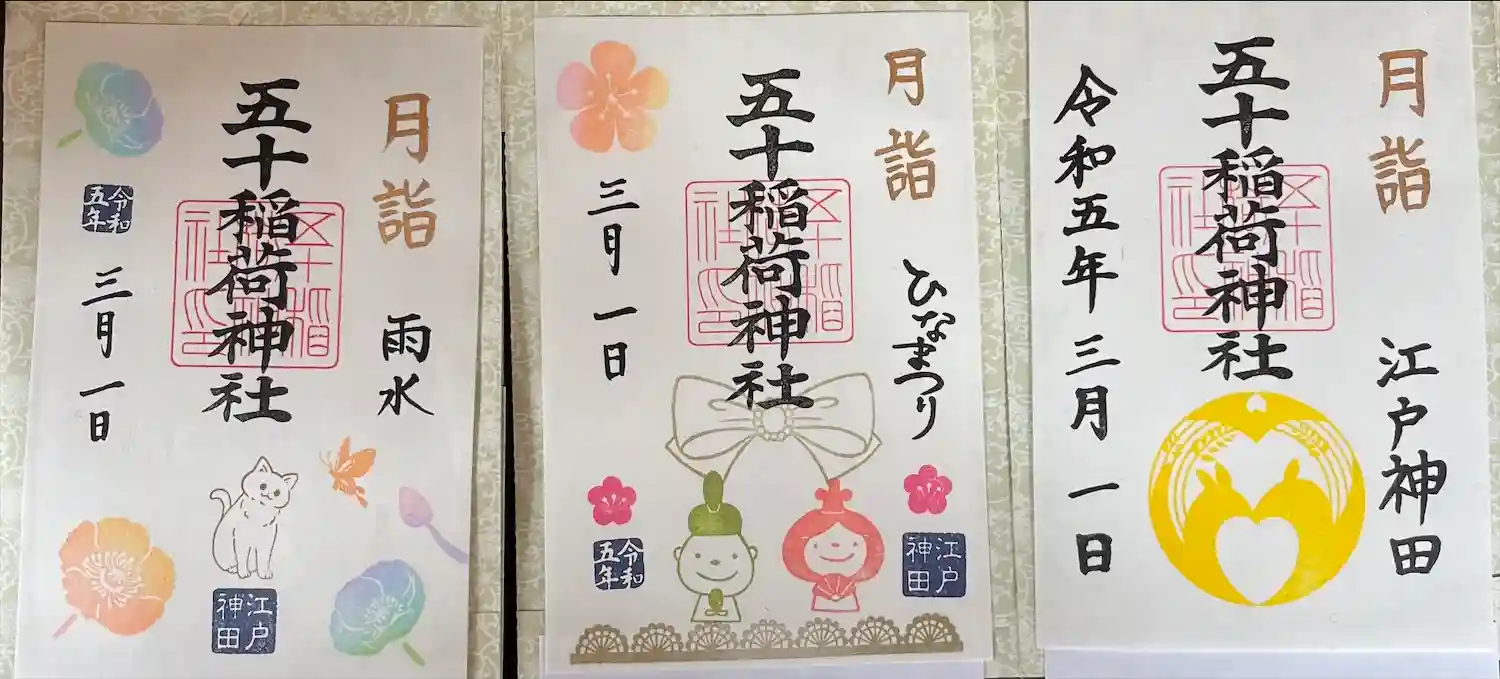 月詣
雨水
五十稲荷神社
令和
五年
三月一日
江戸
神田
月詣
ひなまつり
五十稲荷神社
三月一日
令和
五年
江戸
神田
月詣
江戸神田
五十稲荷神社
令和五年三月一日